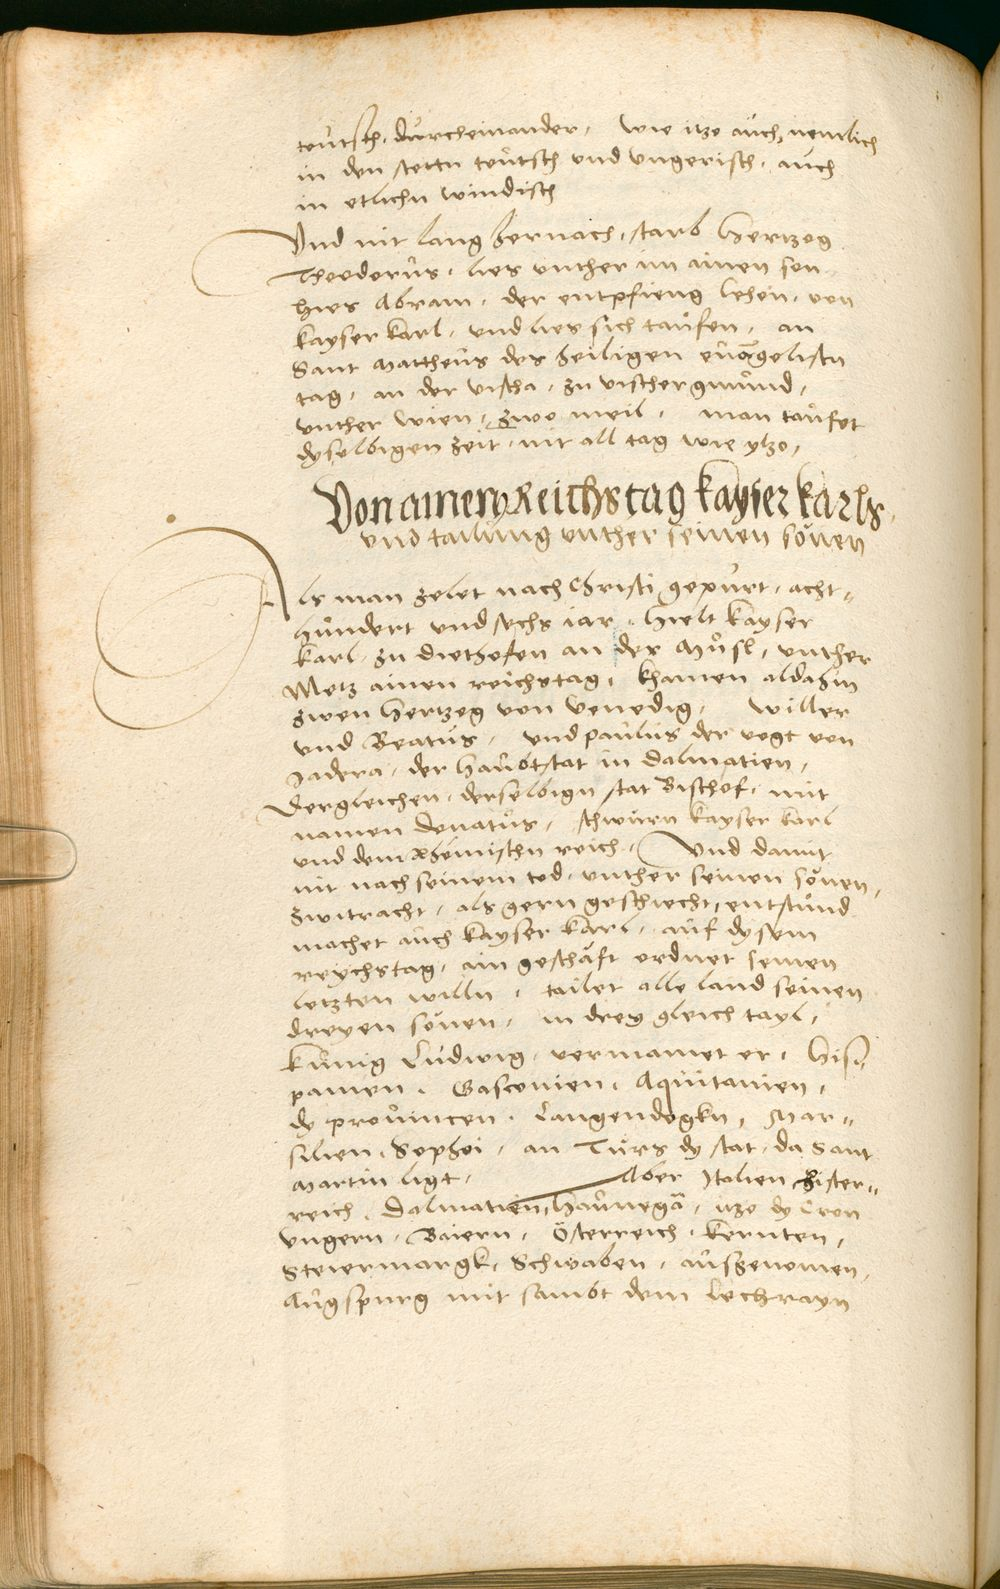 teutsch, durcheinander, wie itzo auch, nemlich
in den stettn teutsch und ungerisch, auch
in etlichn windisch
Vnd nit lang hernach, starb Hertzog
Theodorus, lies vnther im ainen son
hies Abram, der entpfieng lehen, von
kayser karl, vnd lies sich taufen, an
Sant Mattheus des heiligen euangelistn
tag, an der vischa, zu vischergmünd,
vnther wien, zwo meil, man taufet
dyselbigen zeit, nit all tag wie ytzo,
Von ainem Reichstag kayser karls
vnd tailung vnther seinen sönen
Als man zelet nach Christi gepurt, acht=
hundert vnd sechs iar, hielt kayser
karl zu diethofen an der Musl, vnther
Metz ainen reichstag, khamen aldahin
zwen hertzog von Venedig, Willer
vnd Beatus, vnd paulus der vogt von
Jadera, der haubtstat in dalmatien,
Dergleichen, derselbign stat Bischof, mit
namen donatus, schwuren kayser karl
vnd dem Rhömischn reich, Vnd damit
nit nach seinem tod, vnther seinen sönen,
zwitracht, als gern geschiecht, entstund
machet auch kayser karl, auf dysem
reychstag, ain geschäft ordnet seinen
letzten willn, tailet alle land seinen
dreyen sönen, in drey gleich tayl,
künig Ludwig, vermainet er, His=
panien, Gasconien, Aquitanien,
dy prouincen, Langendogkn, Mar=
silien, Sophoi, an Turs dy stat, da Sant
Martin ligt, Aber Italien Hister=
reich, Dalmatien, itzo dy Cron
vngern, Baiern, Österreich, kernten,
Steiermargk, Schwaben, ausgenomen,
Augspurg mit sambt dem Lechrayn